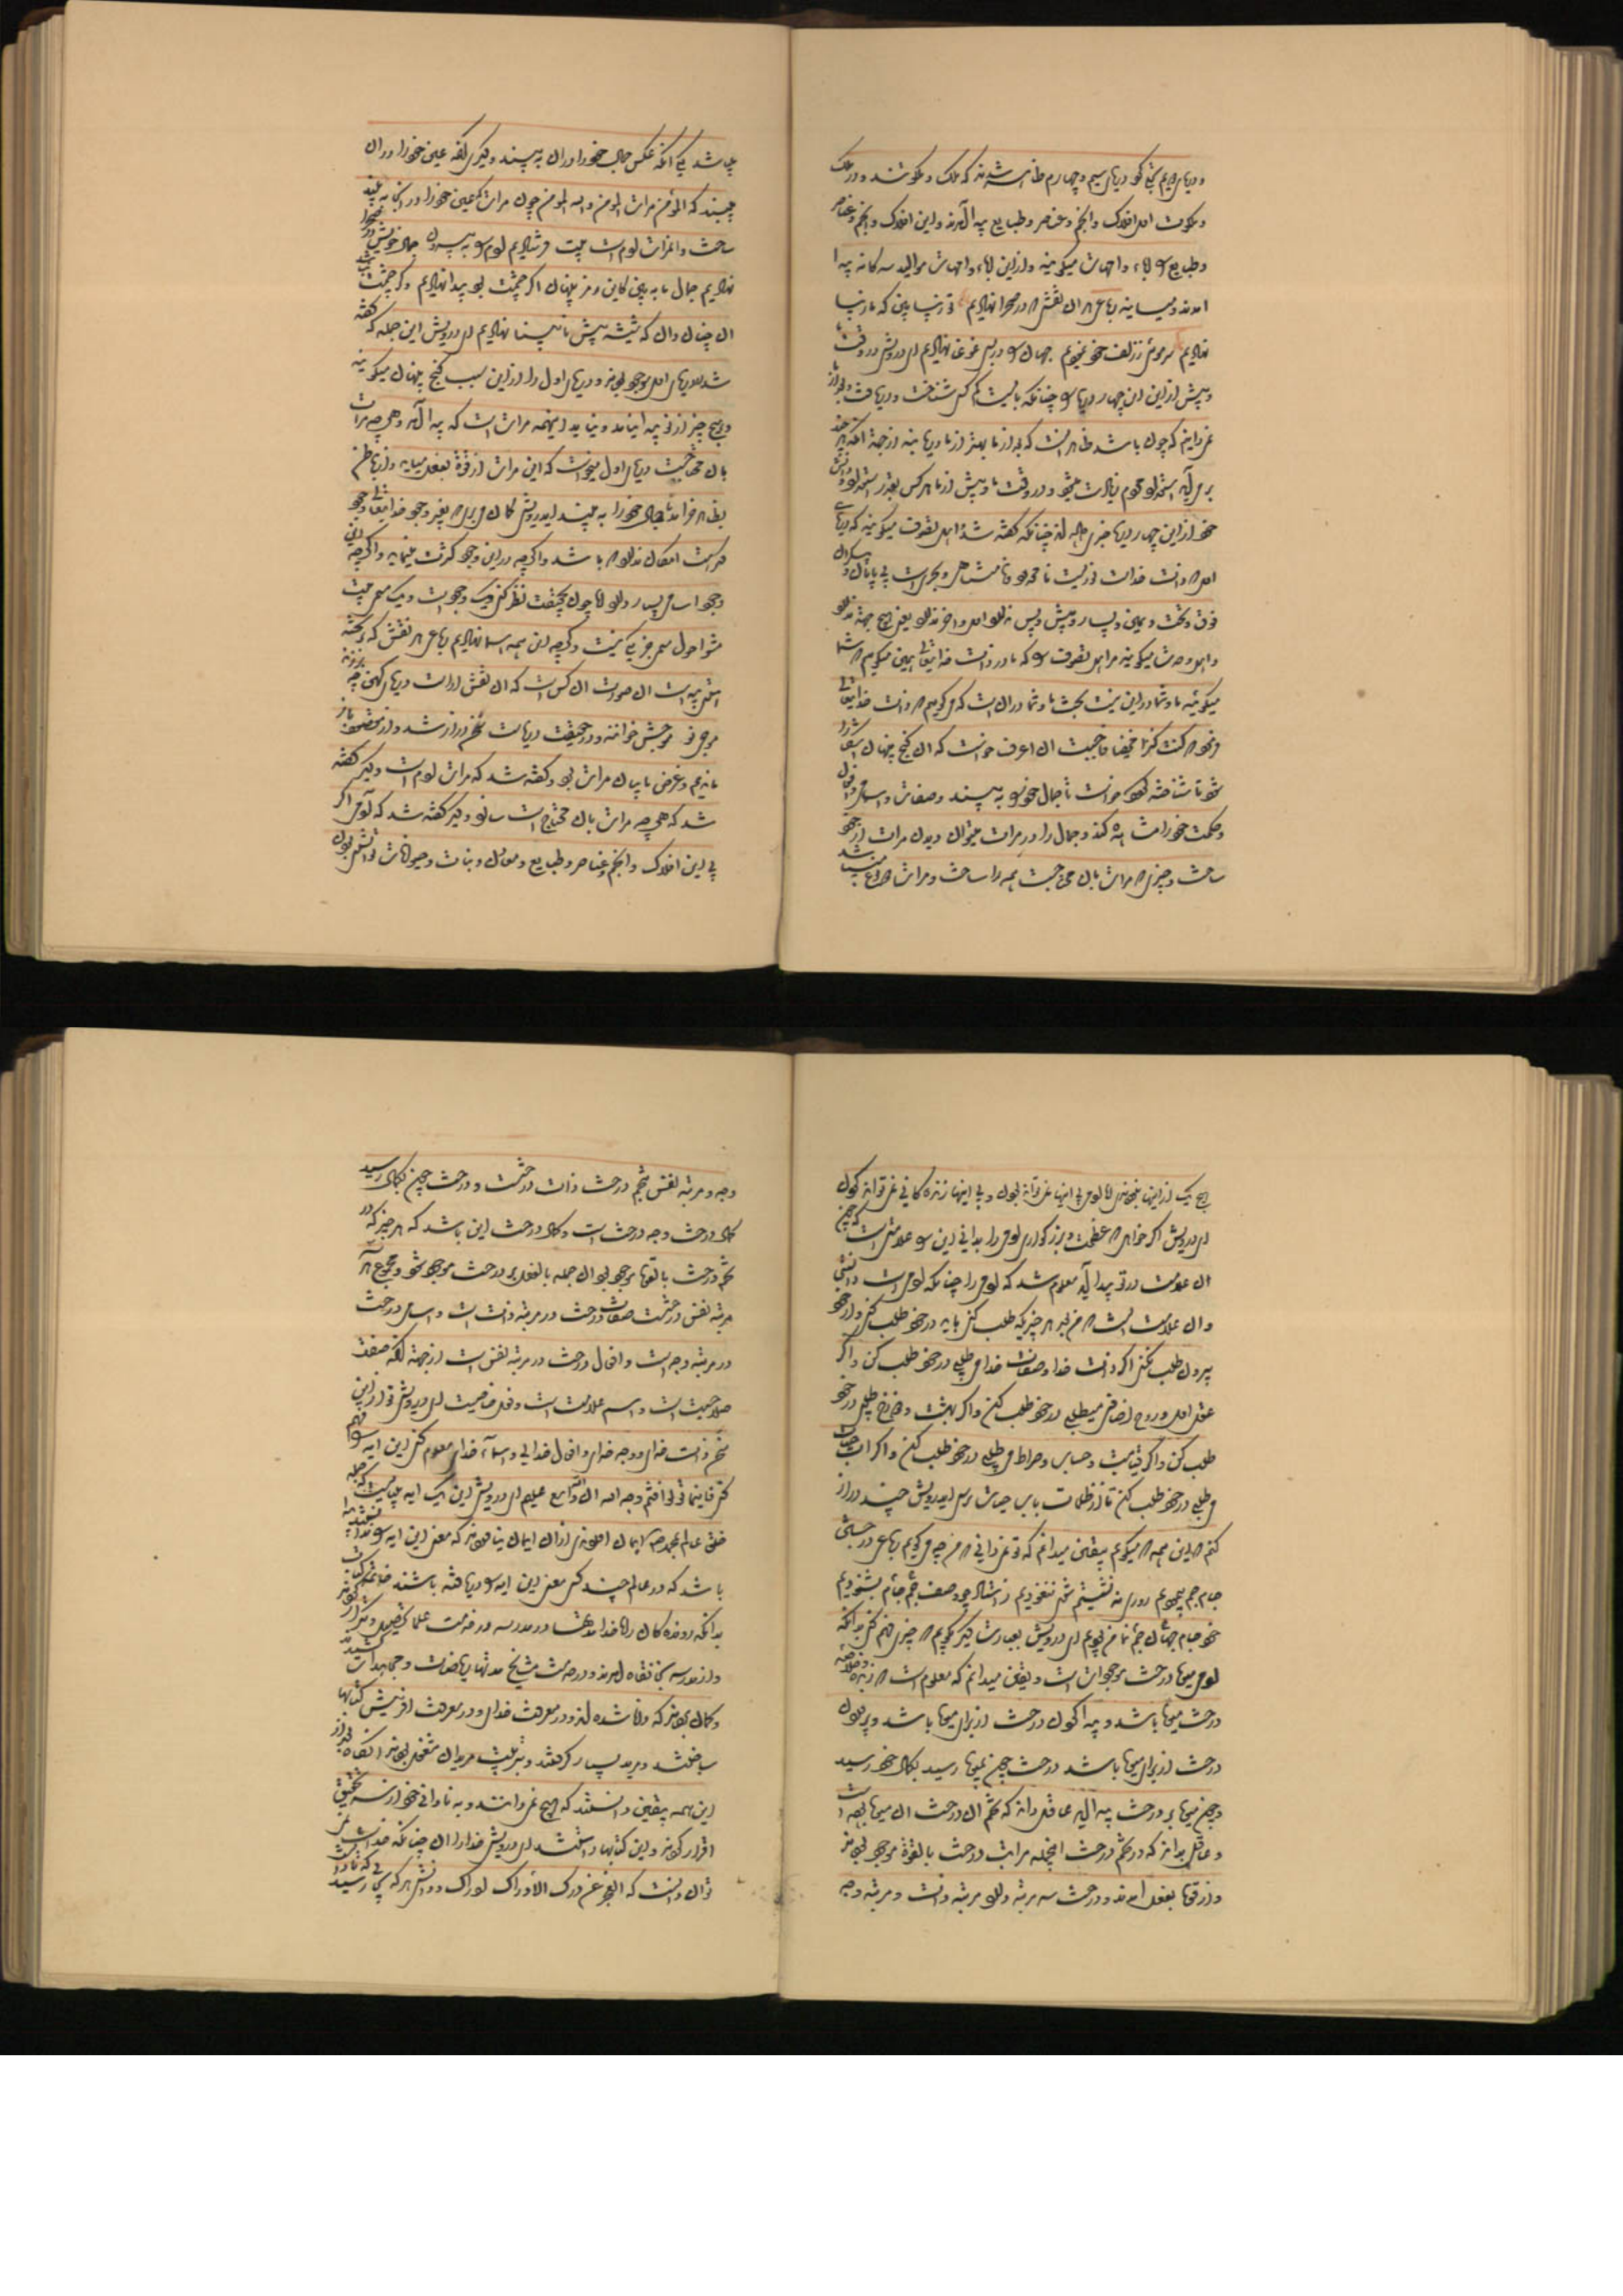 و دریای دویم بتجلی کرد دریای سیم و چهارم ظاهر شدند که ملک و ملکوتند و در ملک
و ملکوت اول افلاک و انجم و عناصر و طبایع پیدا آمدند و این افلاک و انجم و عناصر
و طبایع را آباء و امهات میگویند و از این آباء و امهات موالید سه گانه پیدا
آمدند و میآیند رباعی هر آن نقشی که در صحرا نهادیم تو زیبا بین که ما زیبا
نهادیم سر موئی ز زلف خود نمودیم جهان را در بسی غوغا نهادیم ای درویش در وقت ما
و پیش از این این چهار دریا را چنانکه بایست کم کسی شناخت و دریافت و بعد از ما
نمیدانیم که چون باشد ظاهر آنست که بعد از ما بهتر از ما دریابند از جهة آنکه هر چند
بر می‌آید استعداد مردم زیادت میشود و در وقت ما و پیش از ما هر کس بقدر استعداد و دانش
خود از این چهار دریا چیزی گفته‌اند چنانکه گفته شد اهل تصوف میگویند که دریای
اول که ذات خداست نوریست نامحدود و نامتناهی و بحریست بی پایان و بیکران
فوق و تحت و یمین و یسار و پیش و پس ندارد اول و آخر ندارد یعنی هیچ جهة ندارد
و اهل وحدت میگویند مر اهل تصوف را که ما در ذات خدایتعالی همین میگوئیم که شما
میگوئید ما و شما در این نیست بحث ما و شما در آن است که میگوئیم که ذات خدایتعالی
فرمود که کنت کنزا مخفیا فاحببت ان اعرف خواست که آن گنج پنهان آشکارا
شود تا شناخته گردد خواست تا جمال خود را به بیند و صفات و اسامی و افعال
و حکمت خود را مشاهده کند و جمال را در مرآت میتوان دیدن مرآت از خود
ساخت و چیزی که مرآت بآن محتاج است همه را ساخت و مرآت دو نوع میباشد
میباشد یکی آنکه عکس جمال خود را در آن به بینند و دیگری آنکه عین خود را در آن
بینند که المؤمن مرآت المؤمن و الله المؤمن چون مرآت که عین خود را در آنجا به بیند
ساخت و آن مرآت آدم است بیت فرستادیم آدم را به بیرون جمال خویش در صحرا
نهادیم جمال ما به بین کاین رمز پنهان اگر چشمت بود پیدا نهادیم و گر چشمت نباشد
آن چنان دان که پیشه پیش نابینا نهادیم ای درویش این جمله که گفته
شد در دریای اول موجود بودند و دریای اول را از این سبب گنج پنهان میگویند
و هیچ چیز از نو پیدا نیامد و نیاید اینهمه مرآت است که پیدا آمد و هر چه مرآت
بآن محتاجست دریای اول میخواست که این مرآت از قوة بفعل میآید و از باطن
بظاهر خرامد تا جمال خود را به بیند ای درویش گمان مبر که بغیر وجود خدایتعالی وجود
هست امکان ندارد که باشد و اگر چه در این وجود کثرت مینماید و اگر چه این
وجود اسامی بسیار دارد اما چون بحقیقت نظر کنی یک وجود است و یک مسمی بیت
مشو احول مسمی جز یکی نیست و گرچه این همه اسما نهادیم رباعی هر نقش که بر تخته
هستی پیداست آن صورت آن کس است که آن نقش آراست دریای کهن چه بر زند
موجی نو موجش خوانند و در حقیقت دریاست سخن دراز شد و از مقصود باز
ماندیم و غرض ما بیان مرآت بود و گفته شد که مرآت آدم است و دیگر گفته
شد که هر چه مرآت بآن محتاج است سازد و دیگر گفته شد که آدمی اگر
بی این افلاک و انجم و عناصر و طبایع و معادن و نبات و حیوانات توانستی بودن
هیچ یک از اینها نبودندی اما آدمی بی اینها نمیتواند بودن و بی اینها زندگانی نمیتواند کردن
ای درویش اگر خواهی که عظمت و بزرگواری آدمی را بدانی این را علامتی است که چون
آن علامت در تو پیدا آید معلوم شد که آدمی را چنانکه آدمی است دانستی
و آن علامت آنست که من بعد هر چیزیکه طلب کنی باید در خود طلب کنی و از خود
بیرون طلب نکنی اگر ذات خدا و صفات خدا میطلبی در خود طلب کن و اگر
عقل اول و روح اضافی میطلبی در خود طلب کن و اگر بهشت و دوزخ میطلبی در خود
طلب کن و اگر قیامت و حساب و صراط میطلبی در خود طلب کن و اگر آب حیات
میطلبی در خود طلب کن تا از ظلمات بآب حیات برسی ای درویش چند دراز
کنم این همه که میگویم بیقین میدانم که تو نمیدانی که من چه میگویم رباعی در جستن
جام جم بپیمودیم روزی نه نشستیم و شبی نغنودیم ز استاد چو وصف جام جم بشنودیم
خود جام جهان نمای جم من بودیم ای درویش بعبارت دیگر بگویم که چیزی فهم کنی بدانکه
آدمی میوه درخت موجوداتست و یقین میدانم که معلوم است که زبده و خلاصه
درخت میوه باشد و پیدا کردن درخت از برای میوه باشد و پروردن
درخت از برای میوه باشد درخت چون بمیوه رسید بکمال خود رسید
و چون میوه بر درخت پیدا آید عاقل داند که تخم آن درخت آن میوه بوده است
و عاقل بداند که در تخم درخت اینجمله مراتب درخت بالقوة موجود بودند
و از قوة بفعل آمدند و درخت سه مرتبه دارد مرتبه ذات و مرتبه وجه
وجه و مرتبه نفس تخم درخت ذات درختست و درخت چون بکمال رسید
کمال درخت وجه درخت است و کمال درخت این باشد که هر چیز که در
تخم درخت بالقوة موجود بود آن جمله بالفعل بر درخت موجود شود و مجموع هر
مرتبه نفس درختست صفات درخت در مرتبه ذات است و اسامی درخت
در مرتبه وجه است و افعال درخت در مرتبه نفس است از جهة آنکه صفت
صلاحیت است و اسم علامت است و فعل خاصیت ای درویش تو از این
سخن ذات خدای و وجه خدای و افعال خدای و اسماء خدای معلوم کن این آیه را فهم
کن فاینما تولوا فثم وجه الله ان الله واسع علیم ای درویش این یک آیه بسست که جمله
خلق عالم بمحمد ایمان آوردندی از آن ایمان نیاوردند که معنی این آیه را ندانستند تا
باشد که در عالم چند کس معنی این آیه را دریافته باشند خاتمه کتاب
بدانکه روندگان راه خدا مدتها در مدرسه در خدمت علما تحصیل و تکرار کردند
و از مدرسه بخانقاه آمدند و در خدمت مشایخ مدتها ریاضات و مجاهدات کشیدند
و گمان بردند که دانا شده‌اند و در معرفت خدای و در معرفت آفرینش کتابها
ساختند و مرید بسیار گرفتند و بتربیت مریدان مشغول بودند آنگاه بعد از
این همه بیقین دانستند که هیچ نمیدانند و به نادانی خود از سر تحقیق
اقرار کردند و این کتابها را شستند ای درویش خدا را آن چنانکه خداست نمی
توان دانست که العجز عن درک الادراک ادراک و دانش هر که بجائی رسید